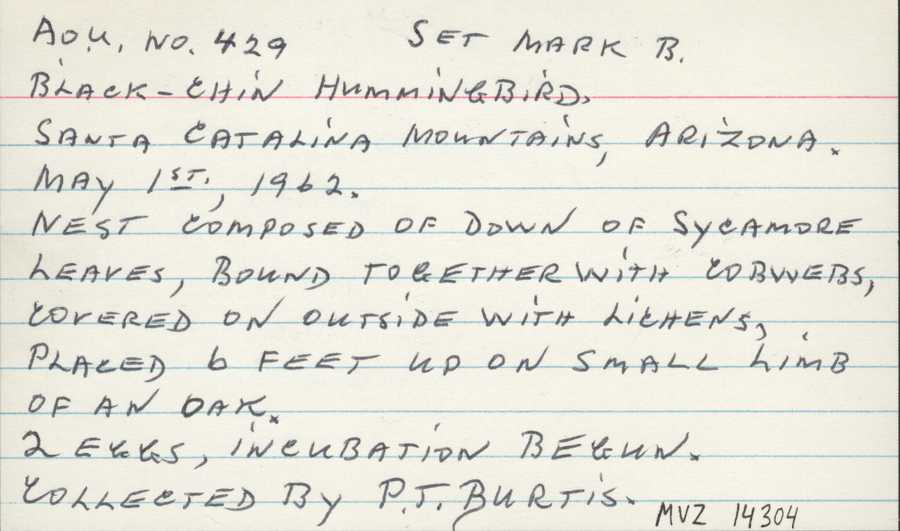 A.O.U. No. 429 SET MARK B.
BLACK-CHIN HUMMINGBIRD.
SANTA CATALINA MOUNTAINS, ARIZONA.
MAY 1ST., 1962.
NEST COMPOSED OF DOWN OF SYCAMORE
LEAVES, BOUND TOGETHER WITH COBWEBS,
COVERED ON OUTSIDE WITH LICHENS,
PLACED 6 FEET UP ON SMALL LIMB
OF AN OAK.
2 EGGS, INCUBATION BEGUN.
COLLECTED BY P.T. BURTIS.
MVZ 14304